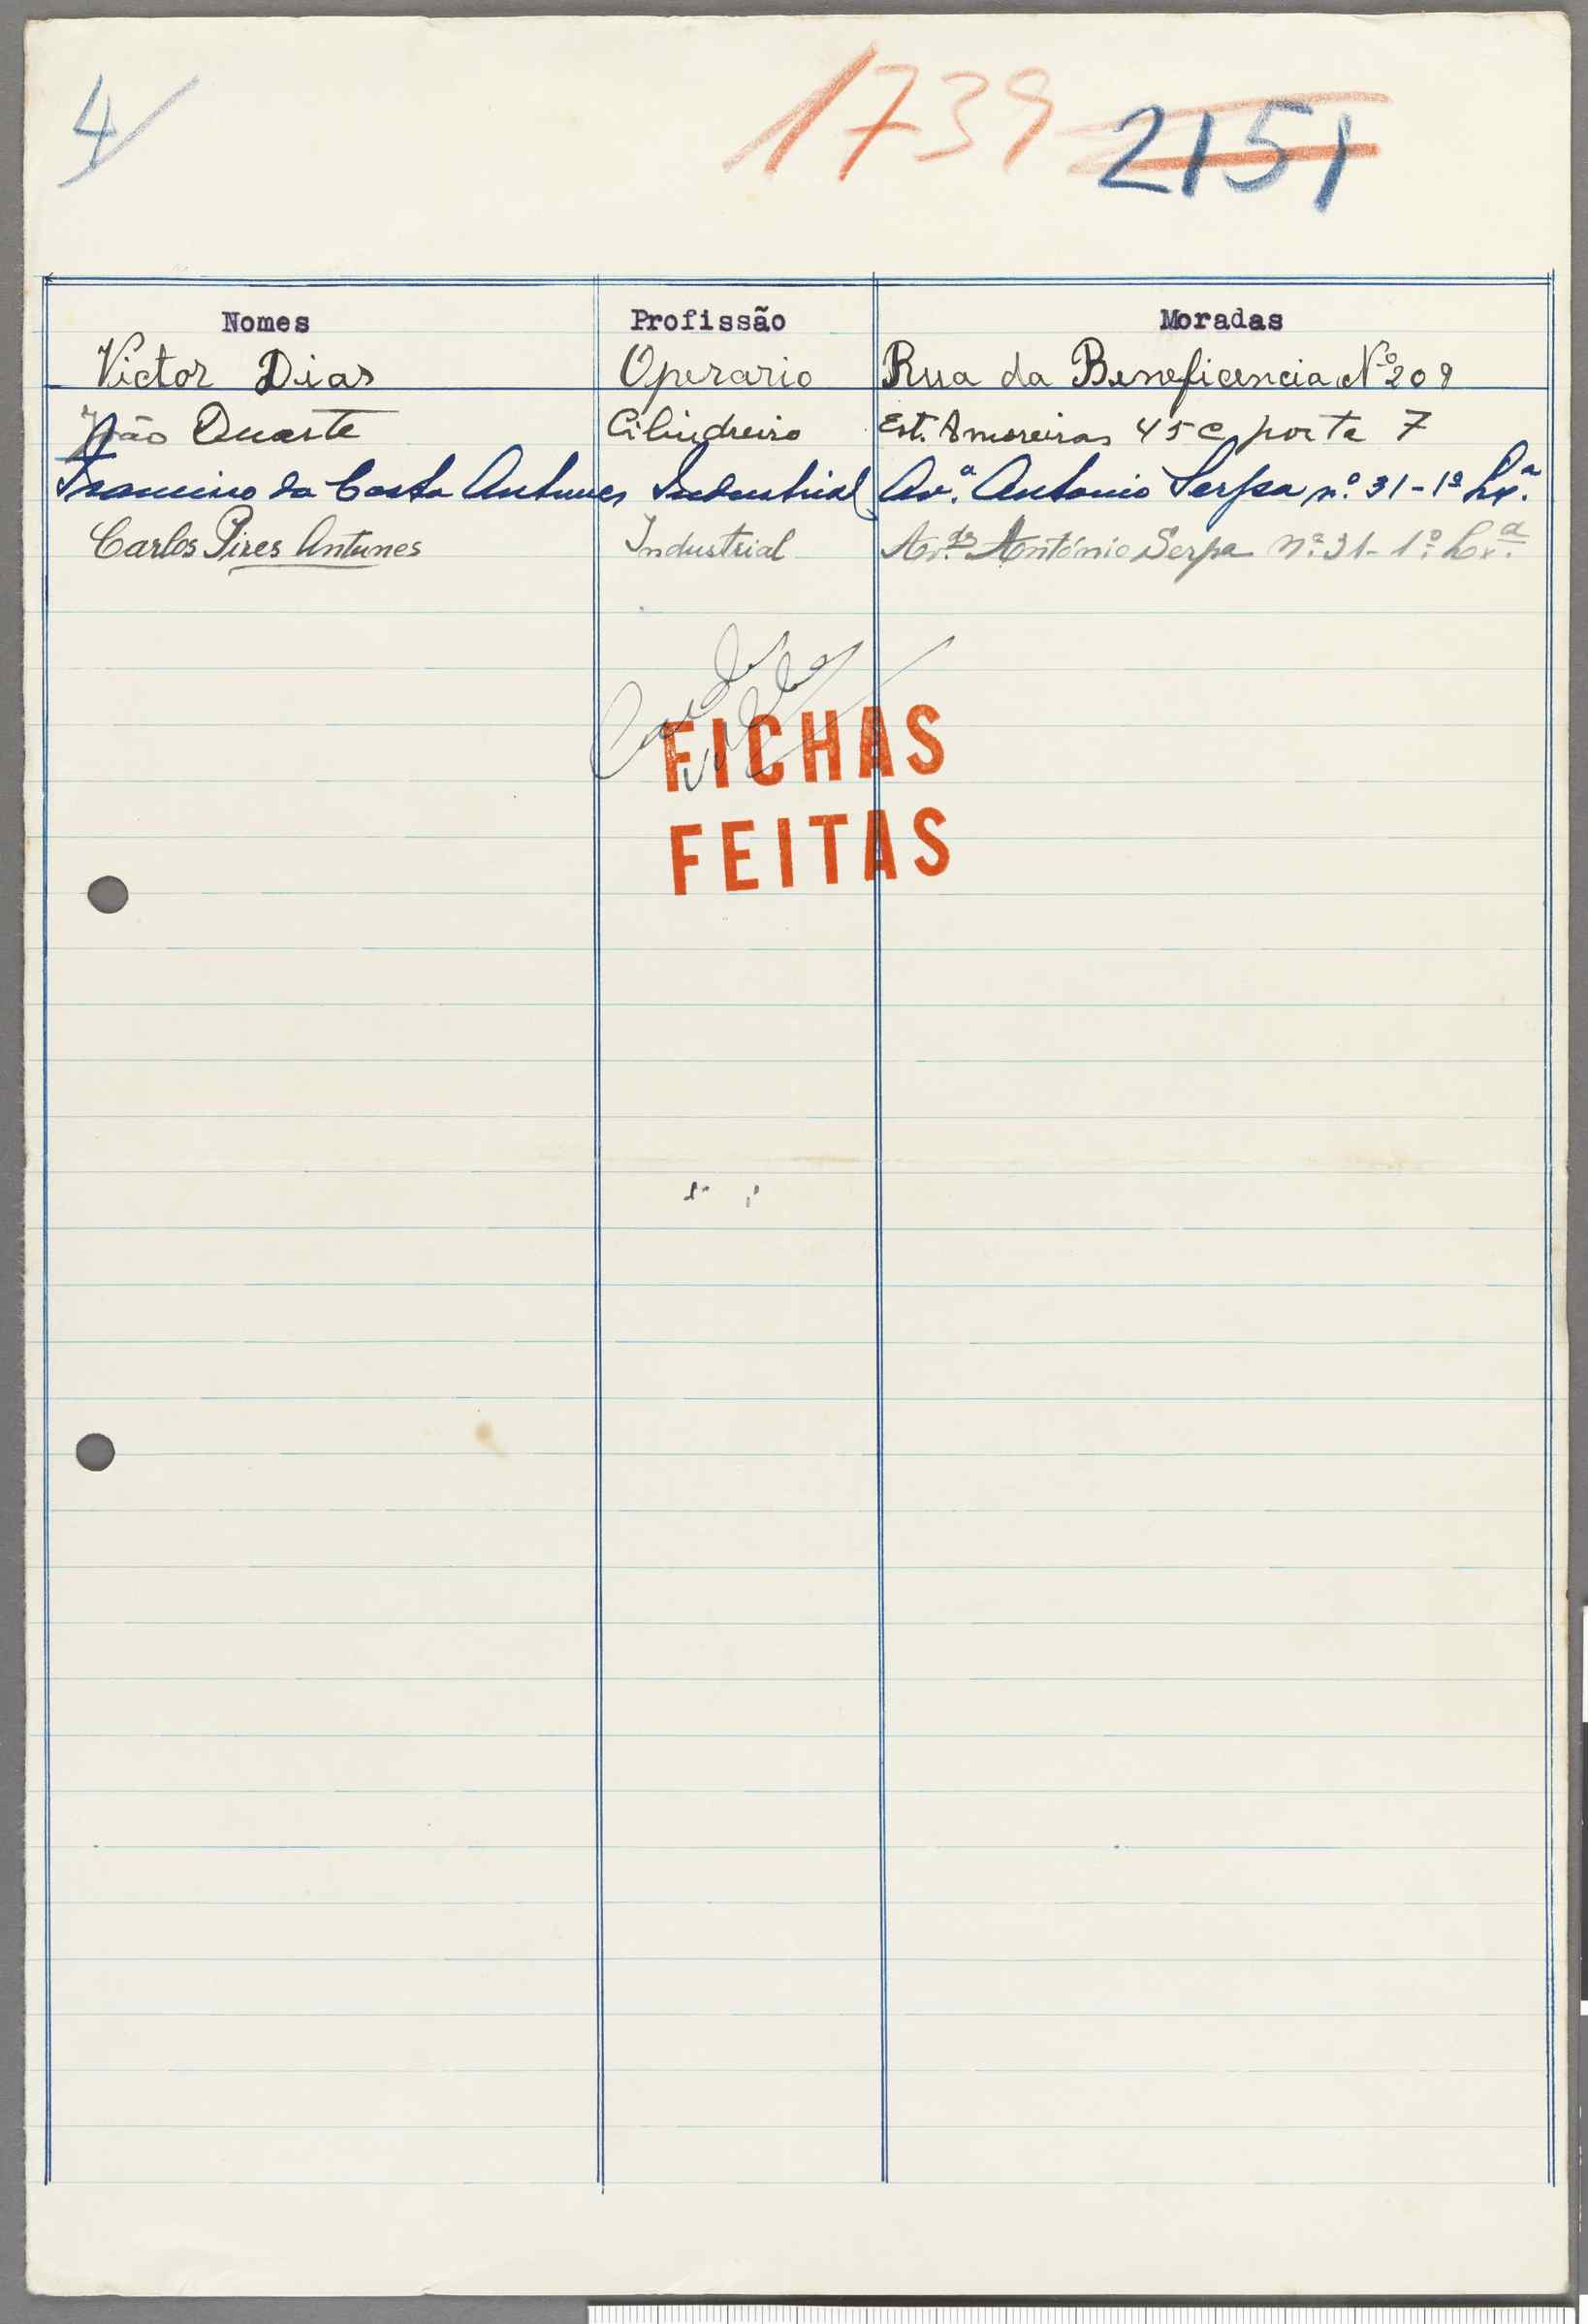 4
1739 2151
Nomes Profissão Moradas
Victor Dias Operario Rua da Beneficencia Nº 209
João Duarte Cilindreiro Est. Amoreiras 45 C porta 7
da Costa Antunes Industrial Av.ª Antonio Serpa n.º 31-1º Lx.ª
Carlos Pires Antunes Industrial Av.da António Serpa Nº 31-1º Lx.ª
FICHAS
FEITAS